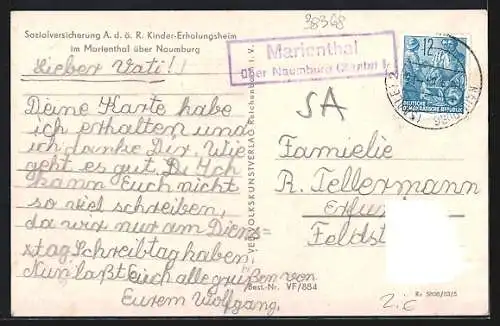 38368
Sozialversicherung A. d. ö. R. Kinder-Erholungsheim
im Marienthal über Naumburg
Marienthal
über Naumburg
12
DEUTSCHE
DEMOKRATISCHE REPUBLIK
Lieber Vati!
Deine Karte habe
ich erhalten und
ich danke Dir. Wie
geht es gut. Ich
kann Euch nicht
so viel schreiben,
da wir nur am Diens-
tag Schreibtag haben.
Nun laßt Euch alle grüßen von
Eurem Wolfgang.
VEB VOLKSKUNSTVERLAG Reichenbach i. V.
Best.-Nr. VF/884
SA
Famielie
R. Tellermann
Erfu
Feldst